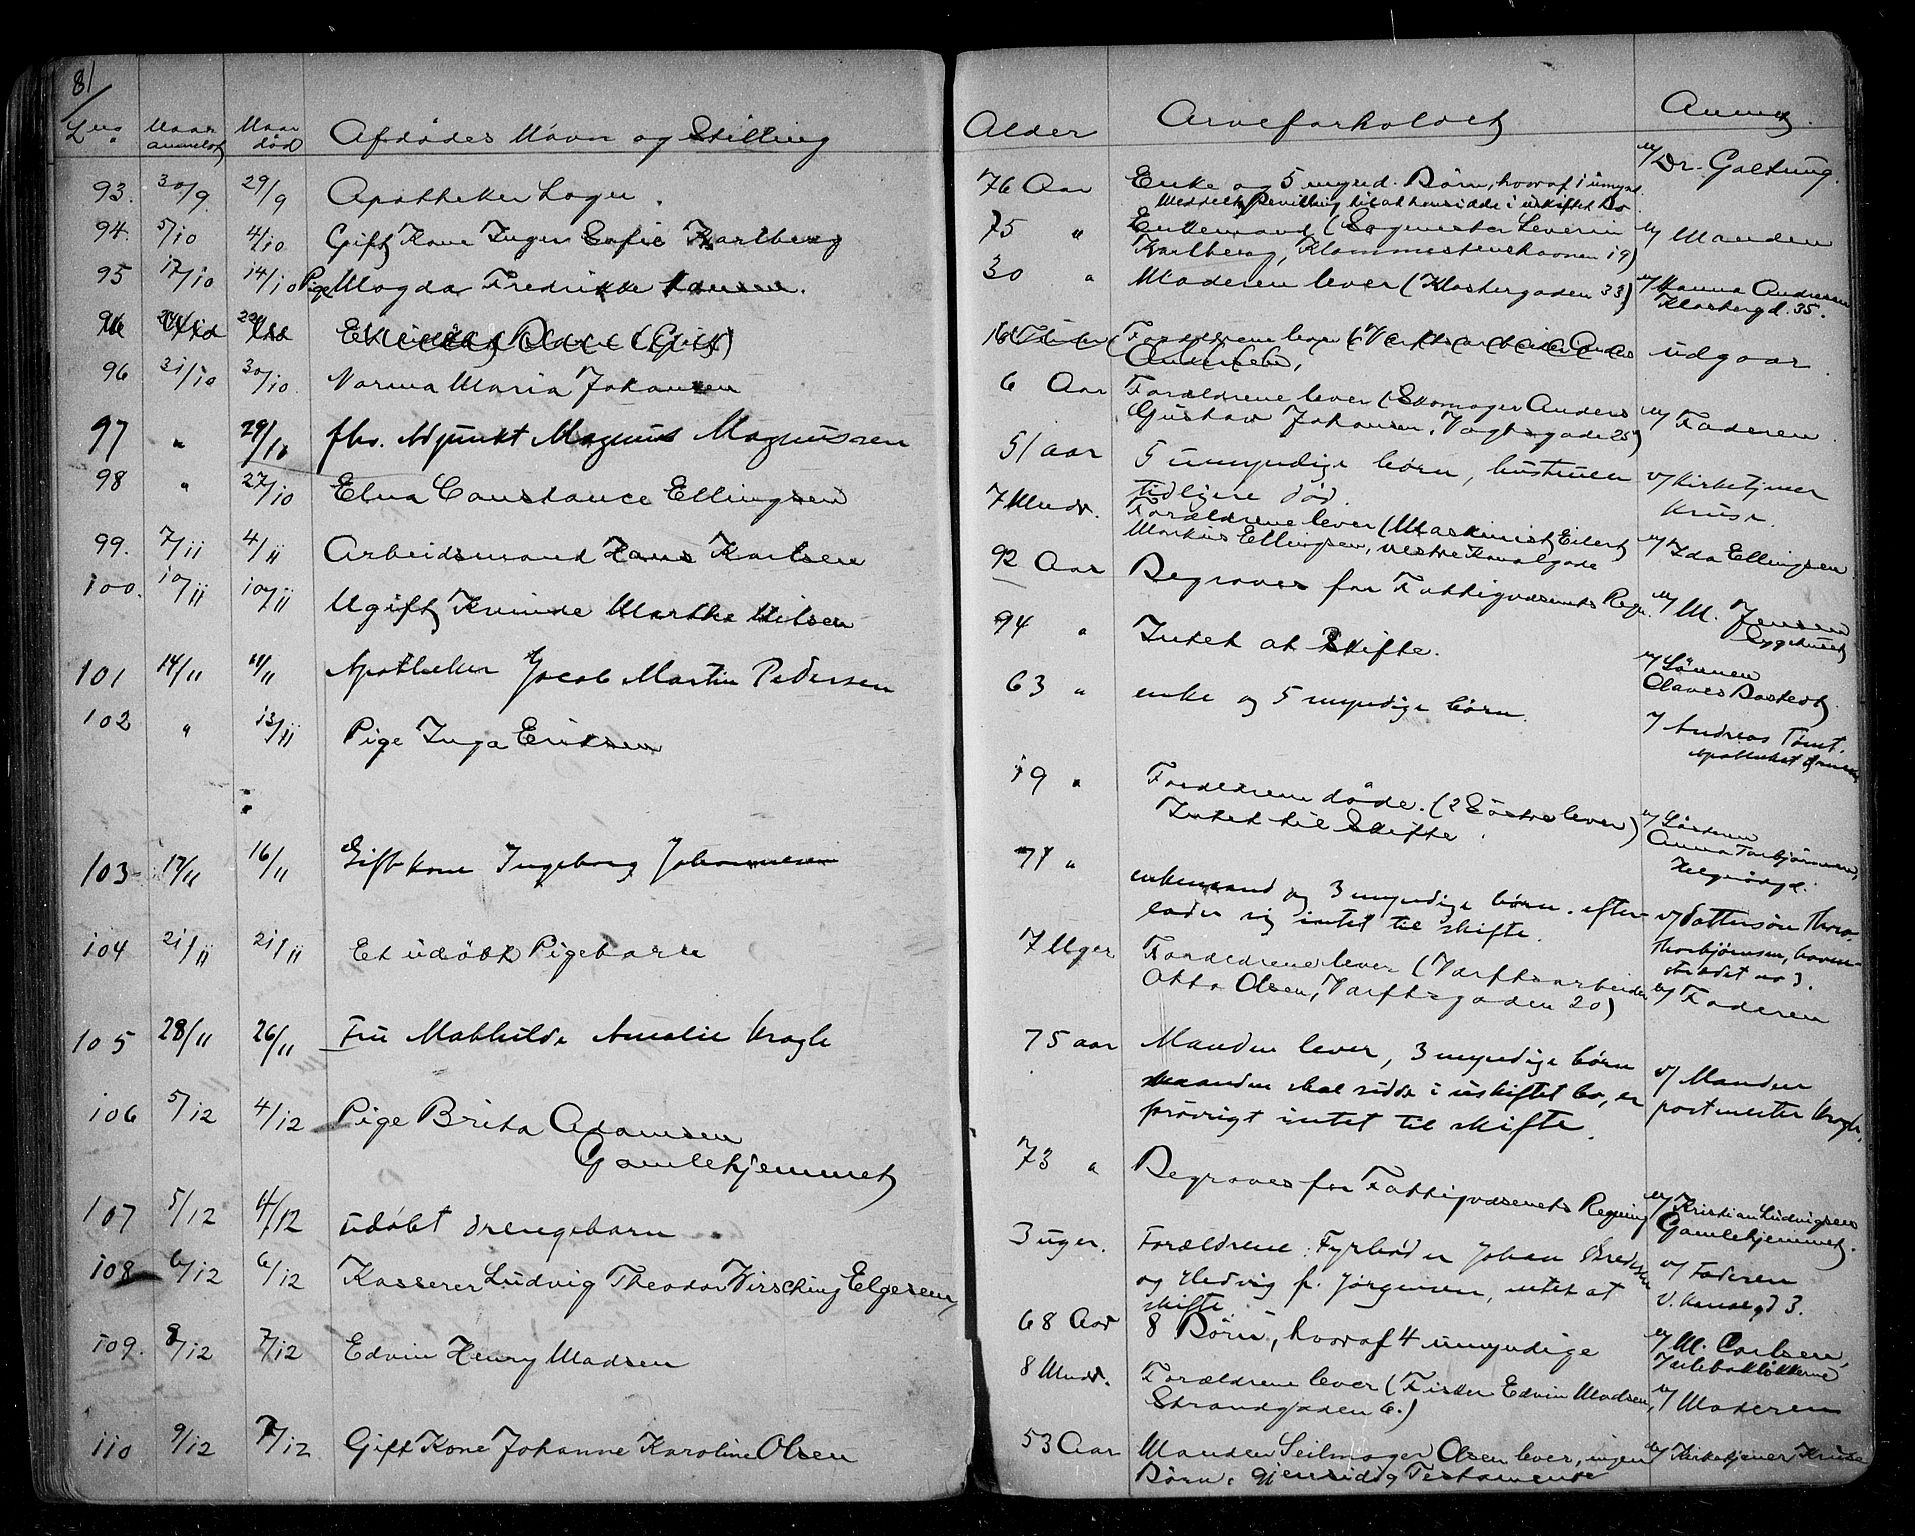 81
Lno Naar anmeldt Naar død Afdødes Navn og Stilling Alder Arveforholdet Anm.
93. 30/9. 29/9 Apotheker 76 Aar Enke og 5 mynd. Børn, hvoraf 1 umynd. v/ Dr. Galtung.
Meddelt Bevilling til at hensidde i uskiftet bo
94. 5/10 4/10 Gift Kone Inger Sofie Karlberg 75 " Enkemand (Severin v/ Manden
Karlberg, 19)
95 17/10 14/10 Pige Magda Fredrikke Hansen. 30 " Moderen lever (Klostergaden 33) v/ Hanna Andresen
Klostergd. 35.
Forældrene lever udgaar.
96 31/10 30/10. Norma Maria Johansen 6 Aar Forældrene lever (Skomager Anders v/ Faderen
Gustav Johansen, Vogtsgade 25)
97 " 29/10 fhv. Adjunkt Magnus Magnussen 51 aar 5 umyndige børn, hustruen v/ Kirketjener
tidligere død. Kruse.
98 " 27/10 Elna Constance Ellingsen 7 Mndr. Forældrene lever (Maskinist Eilert v/ Ida Ellingsen
Markus Ellingsen, vestre Kanalgade
99. 7/11 4/11 Arbeidsmand Hans Karlsen 92 Aar Begraves for Fattigvæsenets Regn. v/ M. Jensen
Sygehuset
100. 10/11 10/11 Ugift Kvinde Marthe Nilsen 94 " Intet at Skifte. v/ Sønnen
Olaves
101 14/11 11/11 Apotheker Jacob Martin Pedersen 63 " enke og 5 myndige børn. v/ Andreas Tømt.
102 " 13/11 Pige Inga Eriksen 19 " Forældrene døde. (2 Søstre lever) v/ Søsteren
Intet til Skifte. Anna Torbjørnsen,
103 17/11 16/11 Gift kone Ingeborg Johannesen 71 " enkemand og 3 myndige børn. efter- v/ Dattersøn Thora
lader sig intet til skifte. Thorbjørnsen,
no 3.
104 21/11 21/11 Et udøbt Pigebarn 7 Uger Forældrene lever (Værftsarbeider v/ Faderen
Otto Olsen, Værftsgaden 20)
105 28/11 26/11 Fru Mathilde Amalie Kragh 75 aar Manden lever, 3 myndige børn v/ Manden
manden skal sidde i uskiftet bo, er postmester Kragh.
forøvrigt intet til skifte.
106 5/12 4/12 Pige Brita Adamsen 73 " Begraves for Fattigvæsenets Regning v/ Kristian Ludvigsen
Gamlehjemmet Gamlehjemmet.
107 5/12 4/12 udøbt drengebarn. 3 uger. Forældrene: Fyrbøder Johan v/ Faderen
og Hedvig f. Jørgensen, intet at V. Kanalgd 3.
skifte.
108 6/12 6/12 Kasserer Ludvig Theodor Wirsching Elgesem, 68 Aar 8 Børn, hvoraf 4 umyndige v/ M. Carlsen,
109. 8/12 7/12 Edvin Henry Madsen 8 Mndr. Forældrene lever (Fisker Edvin Madsen, v/ Moderen
Strandgaden 6.)
110 9/12 7/12 Gift Kone Johanne Karoline Olsen 53 Aar Manden Seilmager Olsen lever, ingen v/ Kirketjener Kruse
Børn. gjensidig Testamente